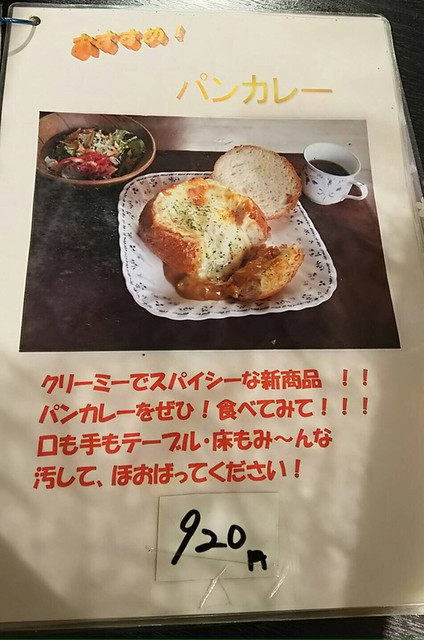 おすすめ！
パンカレー
クリーミーでスパイシーな新商品 ！！
パンカレーをぜひ！食べてみて！！！
口も手もテーブル・床もみ〜んな
汚して、ほおばってください！
920円